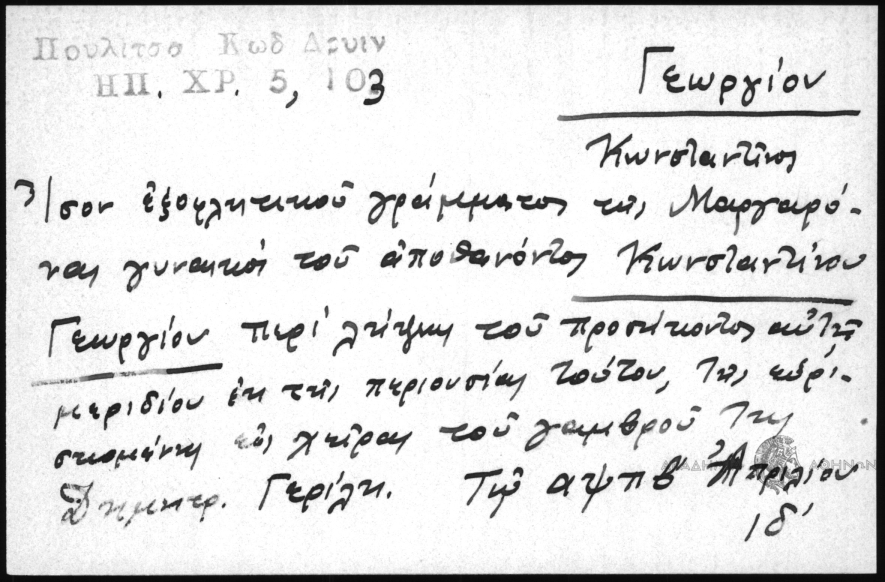 Πουλίτσα Κωδ Δενιν
ΗΠ. ΧΡ. 5, 103
Γεωργίου
Κωνσταντῖνος
Ἴσον ἐξοφλητικοῦ γράμματος τῆς Μαργαρό-
νας γυναικός τοῦ ἀποθανόντος Κωνσταντίνου
Γεωργίου περί λήψεως τοῦ προσήκοντος αὐτῇ
μεριδίου ἐκ τῆς περιουσίας τούτου, τῆς εὑρι-
σκομένης εἰς χεῖρας τοῦ γαμβροῦ της
Δημητρ. Γερίλη. Τῷ αψπβ Ἀπριλίου
ιδ'
ΑΚΑΔΗΜΙΑ ΑΘΗΝΩΝ